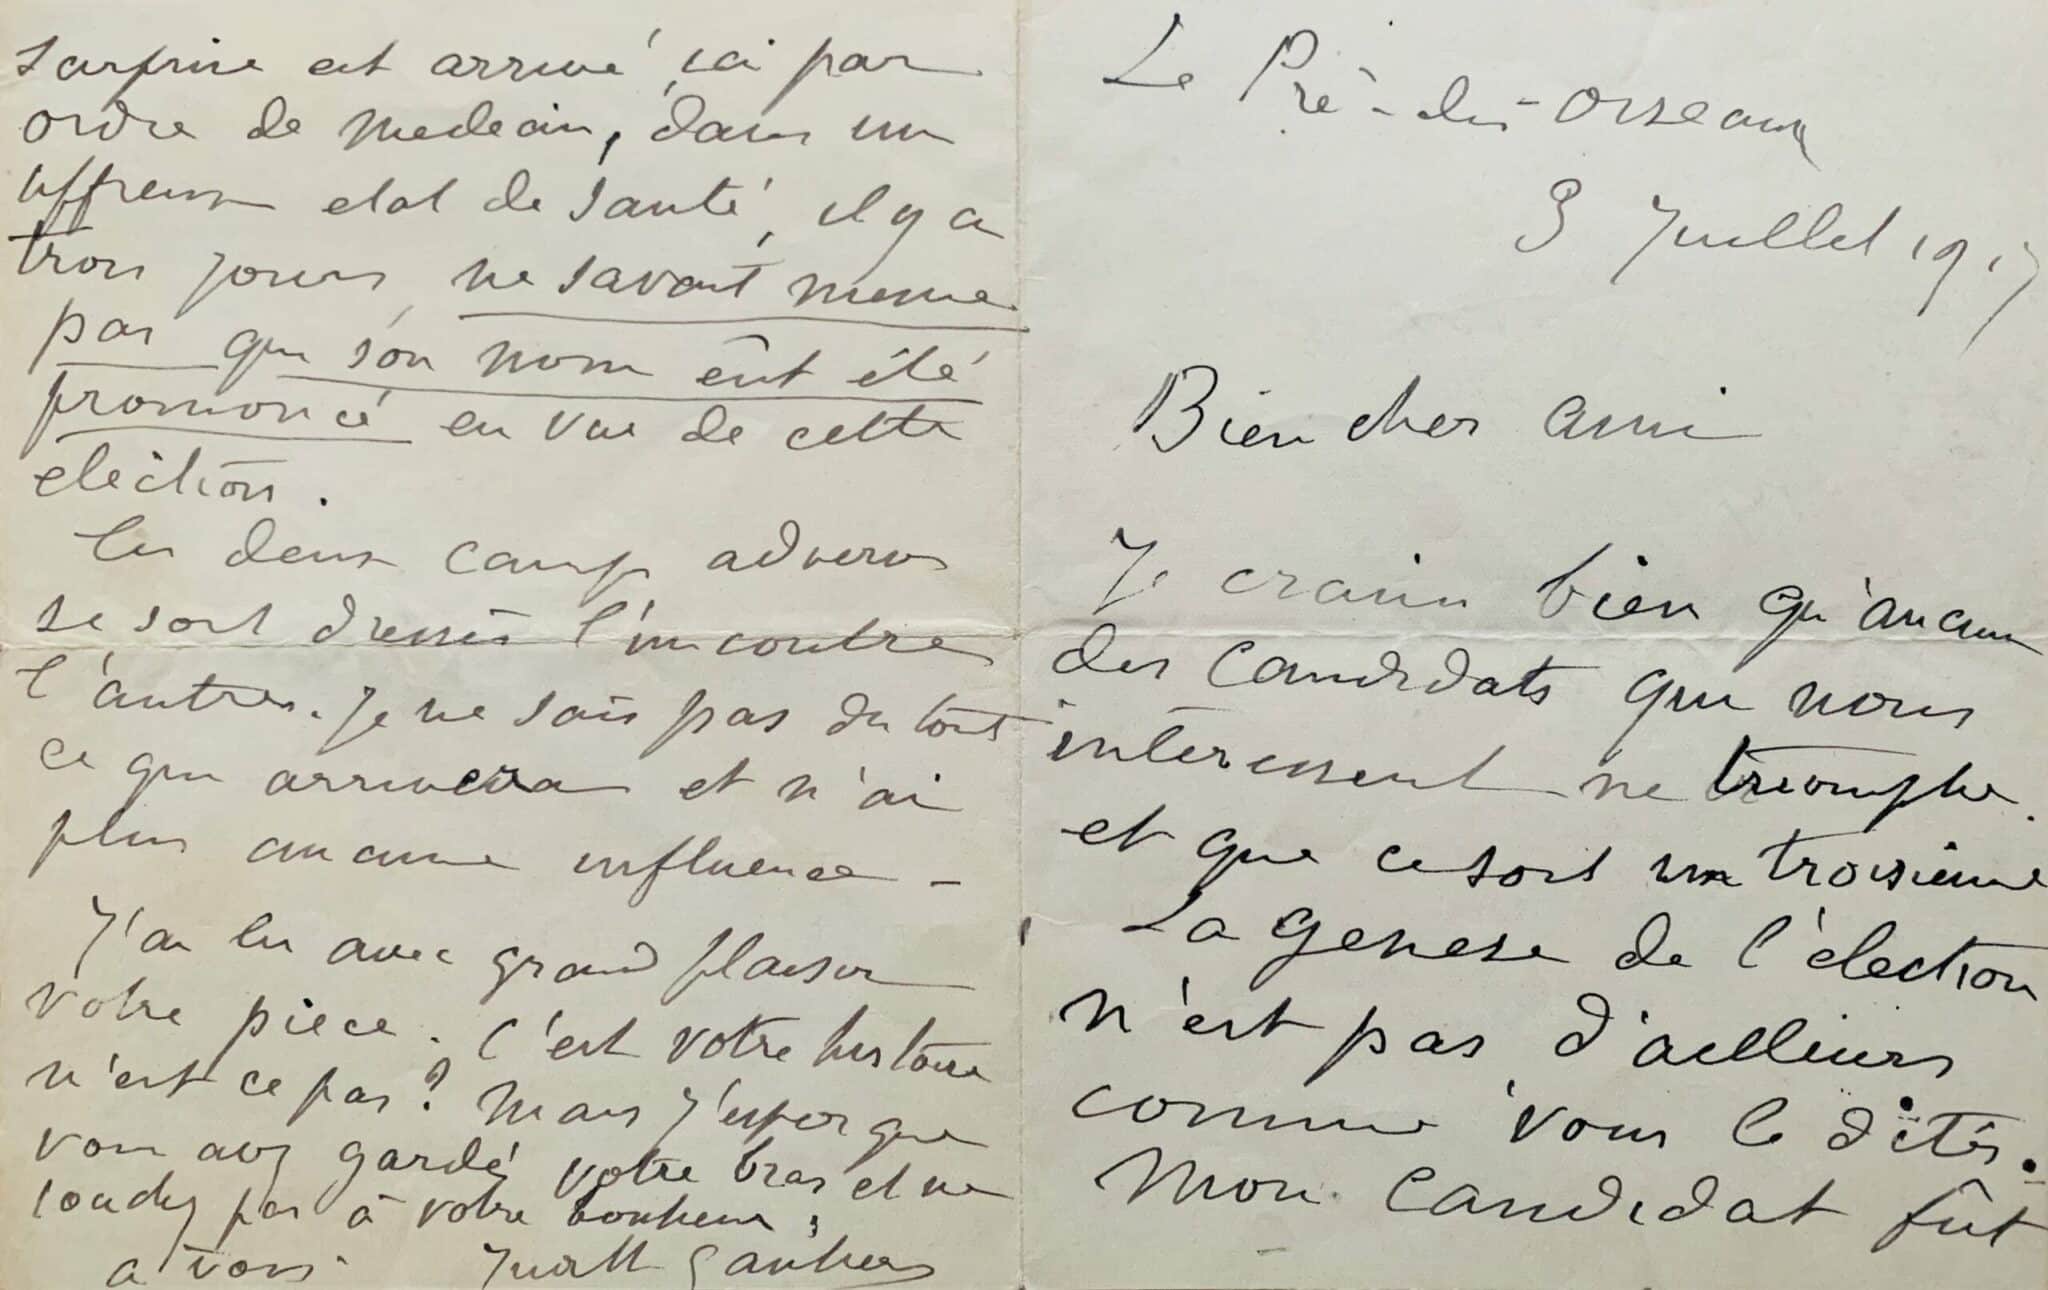 Le Pré-des-Oiseaux
3 Juillet 1917
Bien cher ami
Je crains bien qu'aucun
des candidats qui nous
interessent ne triomphe.
et que ce soit un troisième
La genese de l'élection
n'est pas d'ailleurs
comme vous le dites.
Mon candidat fût
surprise est arrivé ici par
ordre de medecin, dans un
affreux etat de santé, il y a
trois jours, ne savait meme
pas que son nom eût été
prononcé en vue de cette
election.
les deux camps adverses
se sont dressés l'un contre
l'autres. Je ne sais pas du tout
ce qui arrivera et n'ai
plus aucune influence -
J'ai lu avec grand plaisir
votre piece. C'est votre histoire
n'est ce pas? Mais j'espere que
vous avez gardé votre bras et ne
touchez pas à votre bonheur.
a vous Judith Gautier